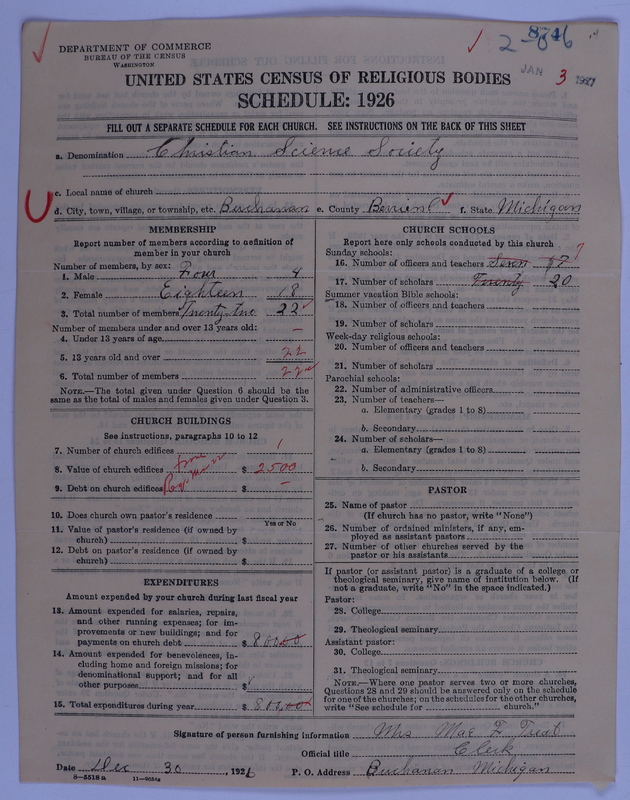 DEPARTMENT OF COMMERCE
BUREAU OF THE CENSUS
WASHINGTON
JAN 3 1927
UNITED STATES CENSUS OF RELIGIOUS BODIES
SCHEDULE: 1926
FILL OUT A SEPARATE SCHEDULE FOR EACH CHURCH. SEE INSTRUCTIONS ON THE BACK OF THIS SHEET
a. Denomination Christian Science Society
c. Local name of church
d. City, town, village, or township, etc. Buchanan e. County Berrien f. State Michigan
MEMBERSHIP
Report number of members according to definition of
member in your church
Number of members, by sex:
1. Male Four 4
2. Female Eighteen 18
3. Total number of members Twenty-two 22
Number of members under and over 13 years old:
4. Under 13 years of age –
5. 13 years old and over 22
6. Total number of members 22
NOTE.—The total given under Question 6 should be the
same as the total of males and females given under Question 3.
CHURCH BUILDINGS
See instructions, paragraphs 10 to 12
7. Number of church edifices 1
8. Value of church edifices from $ 2500
9. Debt on church edifices $ –
10. Does church own pastor's residence
Yes or No
11. Value of pastor's residence (if owned by
church) $
12. Debt on pastor's residence (if owned by
church) $
EXPENDITURES
Amount expended by your church during last fiscal year
13. Amount expended for salaries, repairs,
and other running expenses; for im-
provements or new buildings; and for
payments on church debt $ 800.00
14. Amount expended for benevolences, in-
cluding home and foreign missions; for
denominational support; and for all
other purposes $
15. Total expenditures during year $ 800.00
CHURCH SCHOOLS
Report here only schools conducted by this church
Sunday schools:
16. Number of officers and teachers Seven 7
17. Number of scholars Twenty 20
Summer vacation Bible schools:
18. Number of officers and teachers
19. Number of scholars
Week-day religious schools:
20. Number of officers and teachers
21. Number of scholars
Parochial schools:
22. Number of administrative officers
23. Number of teachers—
a. Elementary (grades 1 to 8)
b. Secondary
24. Number of scholars—
a. Elementary (grades 1 to 8)
b. Secondary
PASTOR
25. Name of pastor
(If church has no pastor, write "None")
26. Number of ordained ministers, if any, em-
ployed as assistant pastors
27. Number of other churches served by the
pastor or his assistants
If pastor (or assistant pastor) is a graduate of a college or
theological seminary, give name of institution below. (If
not a graduate, write "No" in the space indicated.)
Pastor:
28. College
29. Theological seminary
Assistant pastor:
30. College
31. Theological seminary
NOTE.—Where one pastor serves two or more churches,
Questions 28 and 29 should be answered only on the schedule
for one of the churches; on the schedules for the other churches,
write "See schedule for church."
Signature of person furnishing information Mrs Mae F Treat
Official title Clerk
Date Dec 30, 1926 P. O. Address Buchanan Michigan
8—5518a 11—9654a